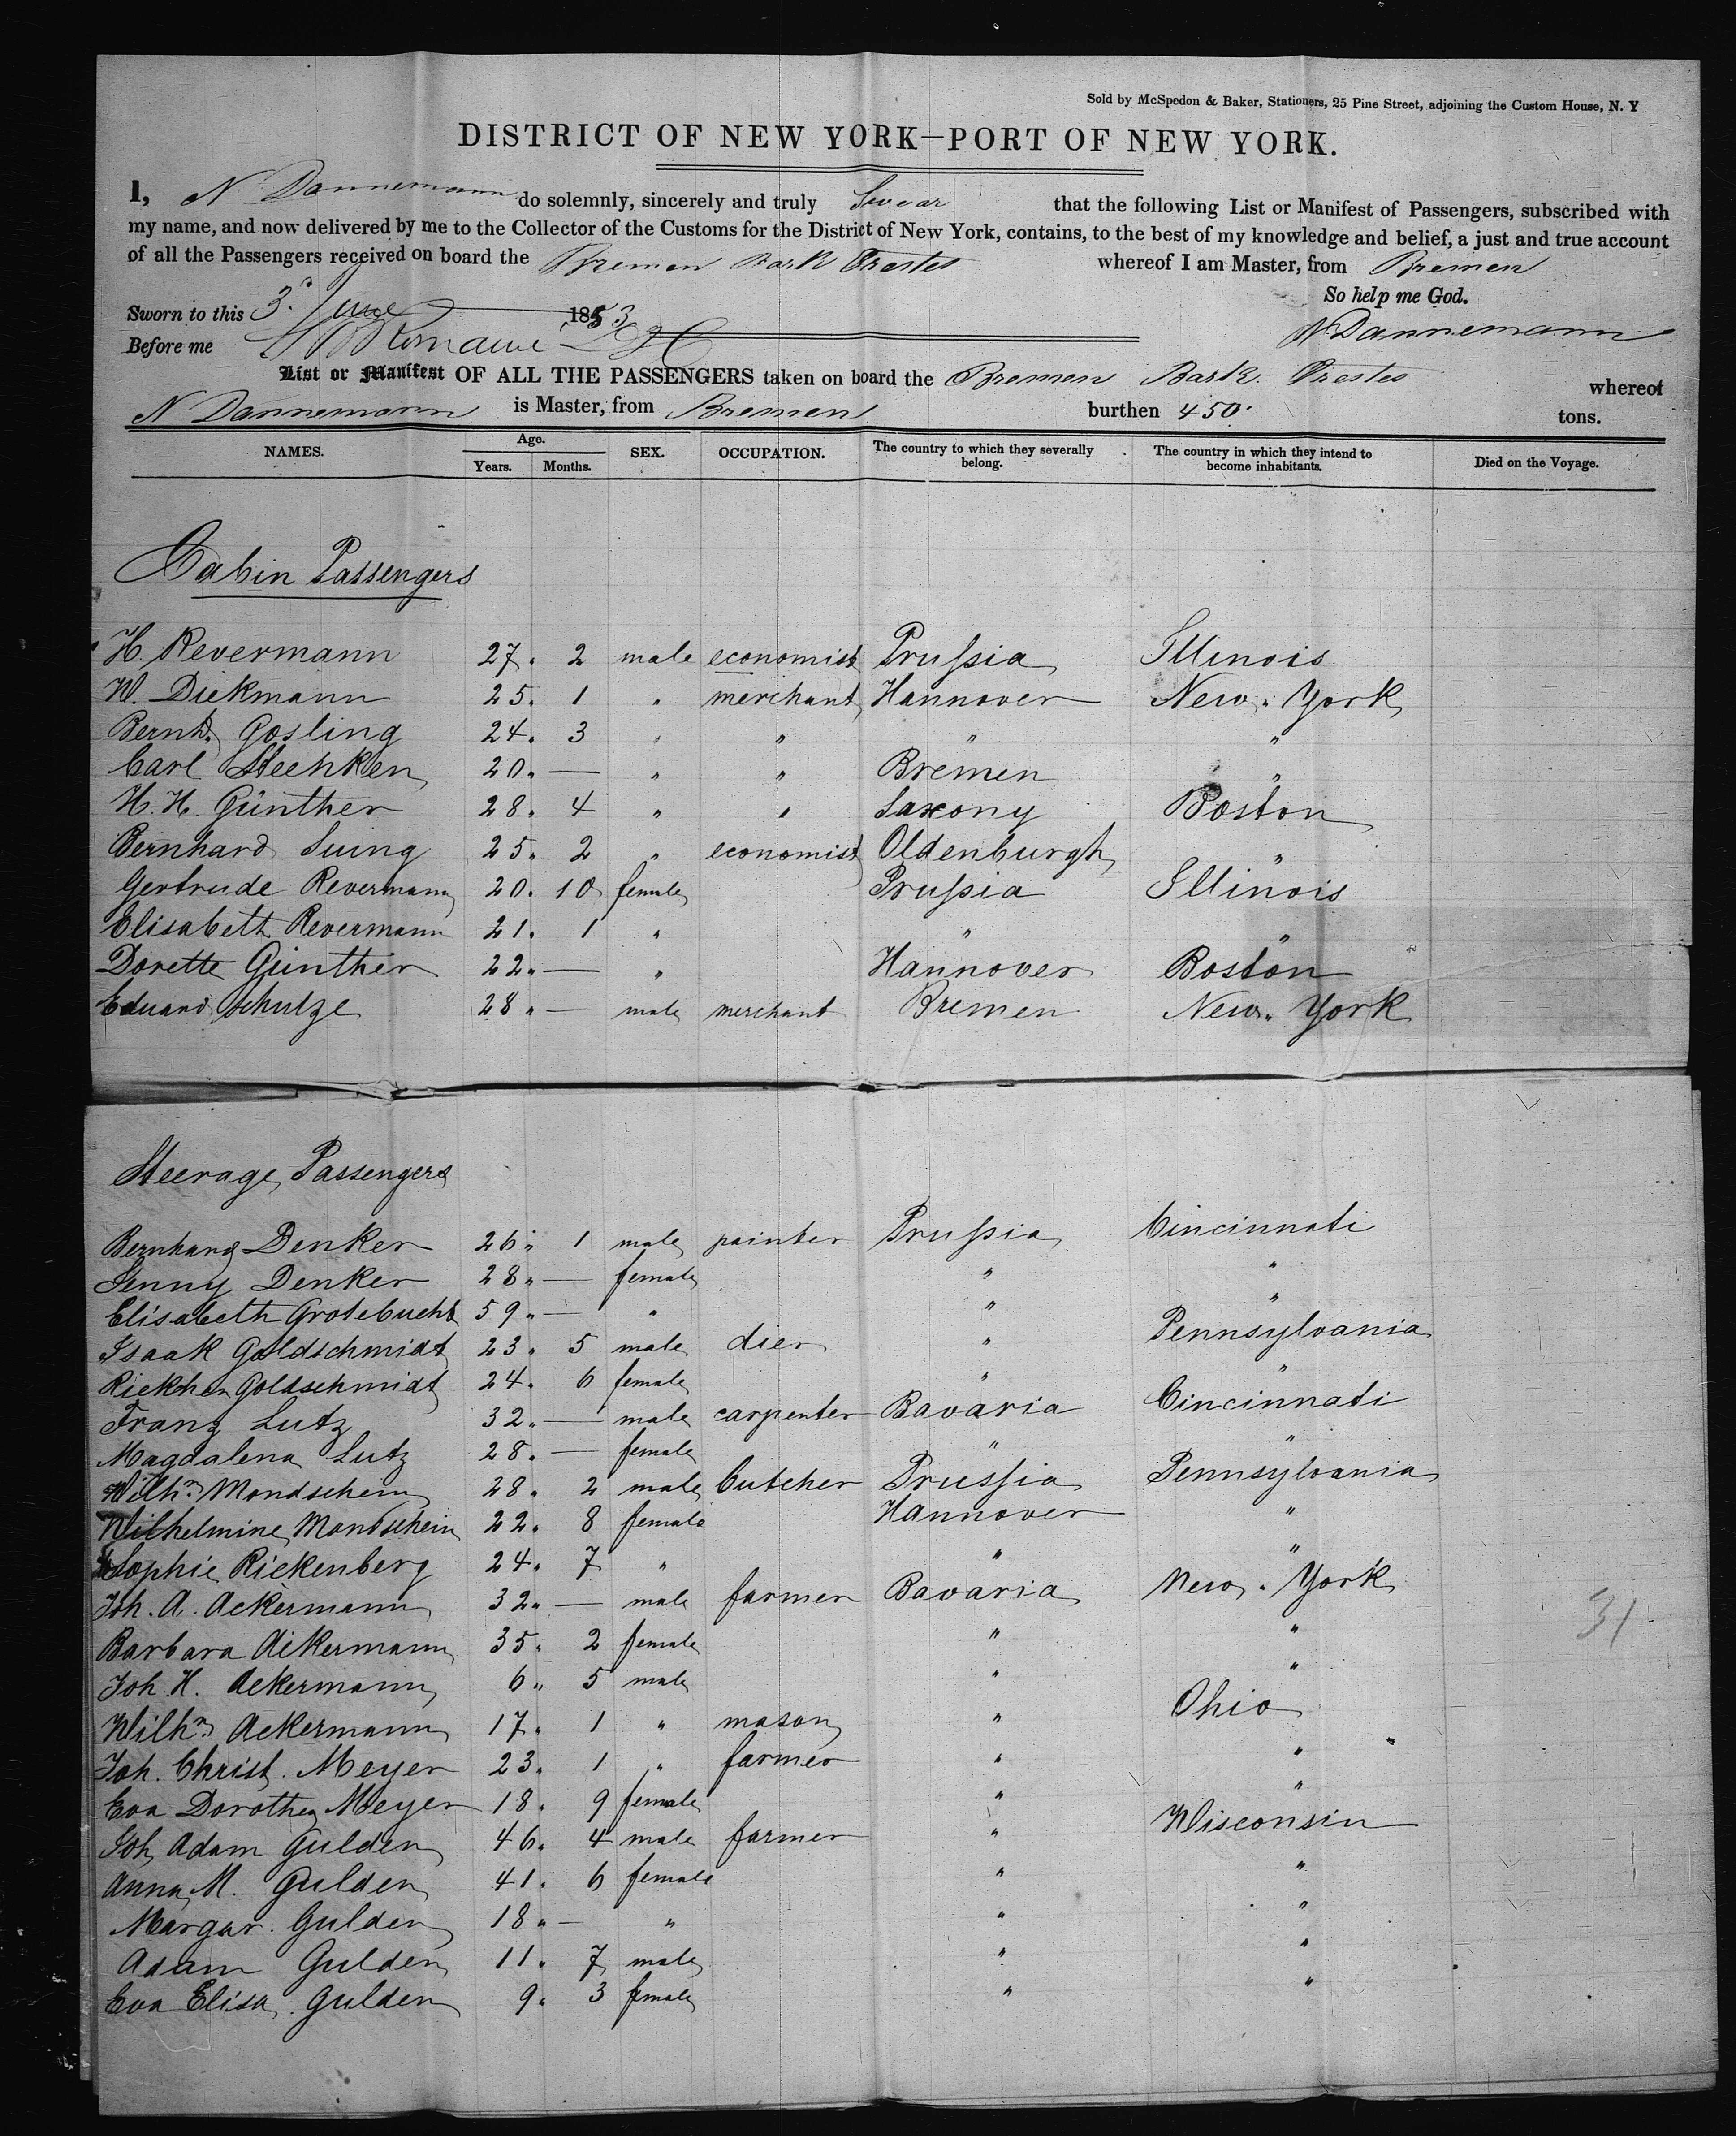 Sold by McSpedon & Baker, Stationers, 25 Pine Street, adjoining the Custom House, N. Y
DISTRICT OF NEW YORK—PORT OF NEW YORK.
I, N Dannemann do solemnly, sincerely and truly Swear that the following List or Manifest of Passengers, subscribed with
my name, and now delivered by me to the Collector of the Customs for the District of New York, contains, to the best of my knowledge and belief, a just and true account
of all the Passengers received on board the Bremen Bark whereof I am Master, from Bremen
So help me God.
Sworn to this 3d June 1853 N Dannemann
Before me Romaine
List or Manifest OF ALL THE PASSENGERS taken on board the Bremen Bark whereof
N Dannemann is Master, from Bremen burthen 450 tons.
NAMES. Age. Years. Months. SEX. OCCUPATION. The country to which they severally belong. The country in which they intend to become inhabitants. Died on the Voyage.
Cabin Passengers
H. Revermann 27 " 2 male economist Prussia Illinois
W. Diekmann 25 " 1 " merchant Hannover New-York
Bernhd. Gosling 24 " 3 " " " "
Carl Steenken 20 " — " " Bremen "
H. H. Günther 28 " 4 " " Saxony Boston
Bernhard Suing 25 " 2 " economist Oldenburgh "
Gertrude Revermann 20 " 10 female Prussia Illinois
Elisabeth Revermann 21 " 1 " " "
Dorette Günther 22 " — " Hannover Boston
Eduard Schulze 28 " — male merchant Bremen New-York
Steerage Passengers
Bernhard Denker 26 " 1 male painter Prussia Cincinnati
Jenny Denker 28 " — female " "
Elisabeth 59 " — " " "
Isaak Goldschmidt 23 " 5 male dier " Pennsylvania
Riekchen Goldschmidt 24 " 6 female " "
Franz Lutz 32 " — male carpenter Bavaria Cincinnati
Magdalena Lutz 28 " — female " "
Wilhm Mondschein 28 " 2 male butcher Prussia Pennsylvania
Wilhelmine Mondschein 22 " 8 female Hannover "
Sophie Rickenberg 24 " 7 " " "
Joh. A. Ackermann 32 " — male farmer Bavaria New-York
31
Barbara Ackermann 35 " 2 female " "
Joh H. Ackermann 6 " 5 male " "
Wilhm Ackermann 17 " 1 " mason " Ohio
Joh. Christ. Meyer 23 " 1 " farmer " "
Eva Dorothea Meyer 18 " 9 female " "
Joh Adam Gulden 46 " 4 male farmer " Wisconsin
Anna M. Gulden 41 " 6 female " "
Margar. Gulden 18 " — " " "
Adam Gulden 11 " 7 male " "
Eva Elisa. Gulden 9 " 3 female " "